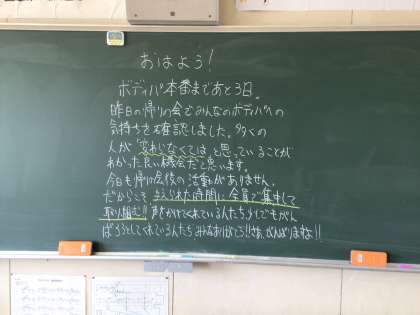 おはよう!
ボディパ本番まであと3日。
昨日の帰りの会でみんなのボディパへの
気持ちを確認しました。多くの
人が「変わらなくては」と思っていることが
わかった良い機会だと思います。
今日も帰りの会後の活動がありません。
だからこそ、与えられた時間に全員で集中して
取り組む!!声をかけてくれている人たち、少しでもがん
ばろうとしてくれている人たち みんなありがとう!!さあ、がんばりますよ!!